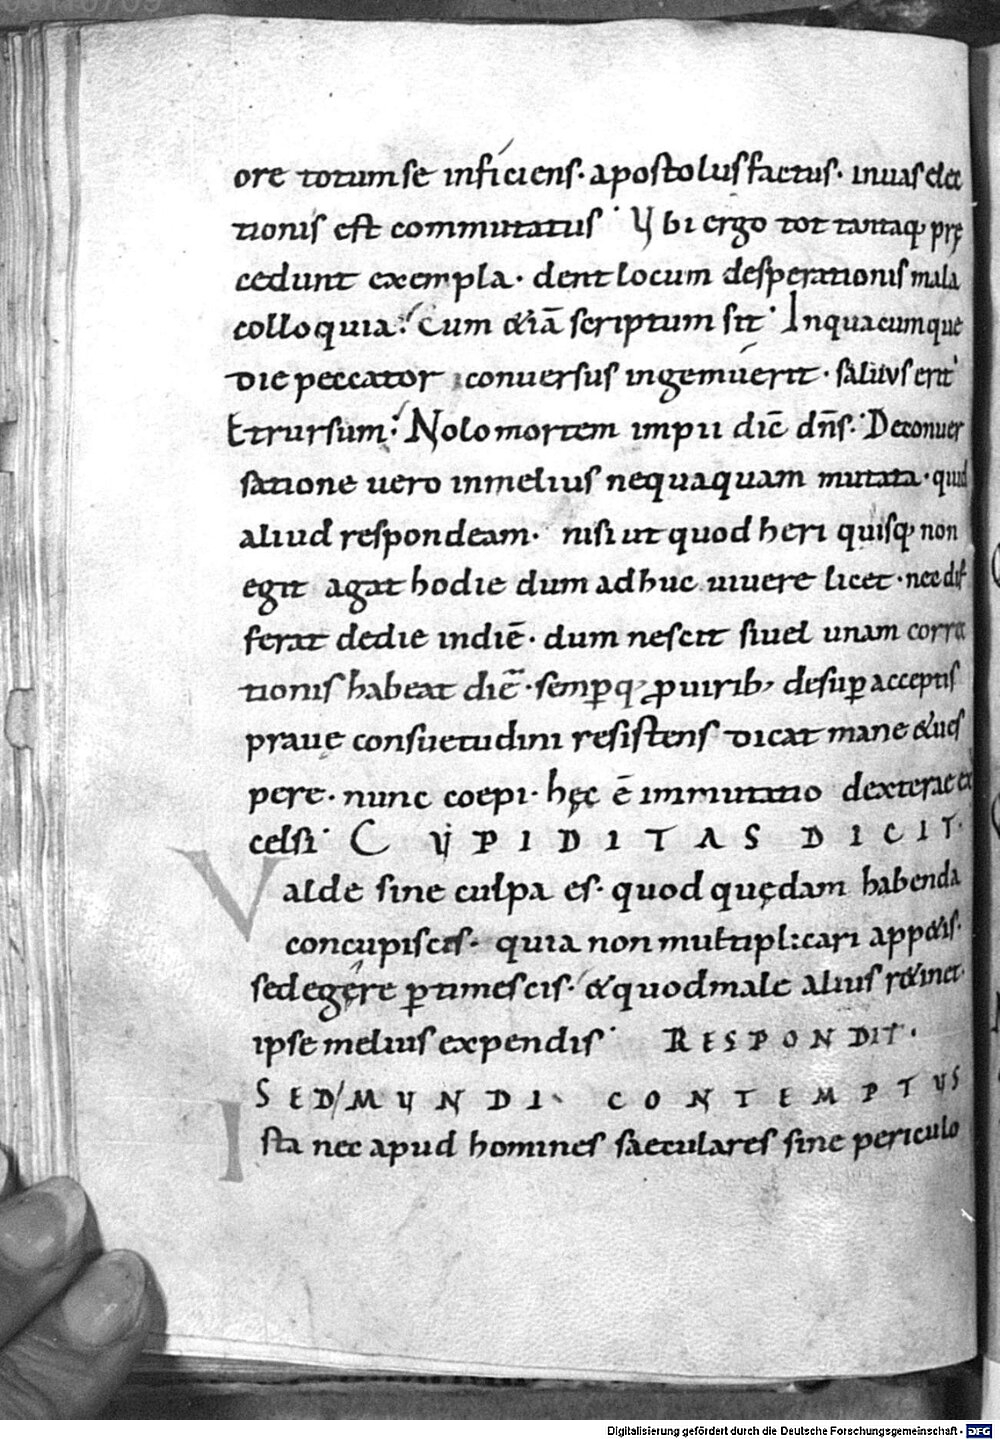 ore totum se inficiens· apostolus factus· in uas elec
tionis est commutatus· Ubi ergo tot tantaq; prę
cedunt exempla· dent locum desperationis mala
colloquia· Cum &iā scriptum sit· In quacumque
die peccator conuersus ingemuerit· saluus erit·
Et rursum· Nolo mortem impii dic̄ dn̄s· De conuer
satione uero in melius nequaquam mutata· quid
aliud respondeam· nisi ut quod heri quisq; non
egit agat hodie dum adhuc uiuere licet· nec dif
ferat de die in diē· dum nescit si uel unam correc
tionis habeat diē· semp̄q; ꝓ uirib; desup̄ acceptis
prauę consuetudini resistens dicat mane & ues
pere· nunc coepi· hęc ē immutatio dexterae ex
celsi· CUPIDITAS DICIT·
Valde sine culpa es· quod quędam habenda
concupiscis· quia non multiplicari app&is·
sed egere ꝑtimescis· & quod male alius r&inet·
ipse melius expendis· RESPONDIT·
SED/MUNDI CONTEMPTUS
Ista nec apud homines saeculares sine periculo
Digitalisierung gefördert durch die Deutsche Forschungsgemeinschaft - DFG